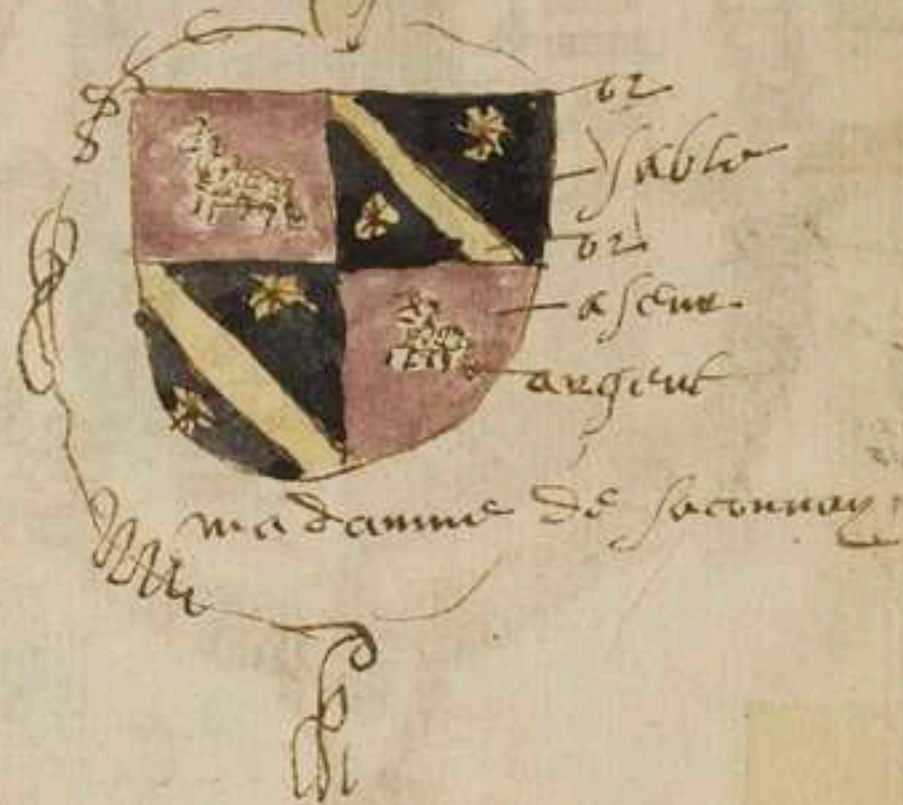 or
sable
or
aseur
argent
madamme de saconnay